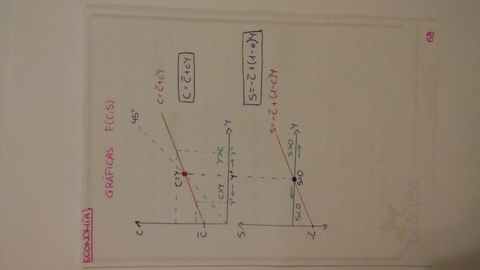 ECONOMÍA
GRÁFICAS F(C,S)
C
45º
C = C̅ + cY
C = C̅ + cY
C=Y
C̅
C>Y
Y>C
Y
S
S = -C̅ + (1-c)Y
S = -C̅ + (1-c)Y
S<0
S=0
S>0
Y
-C̅